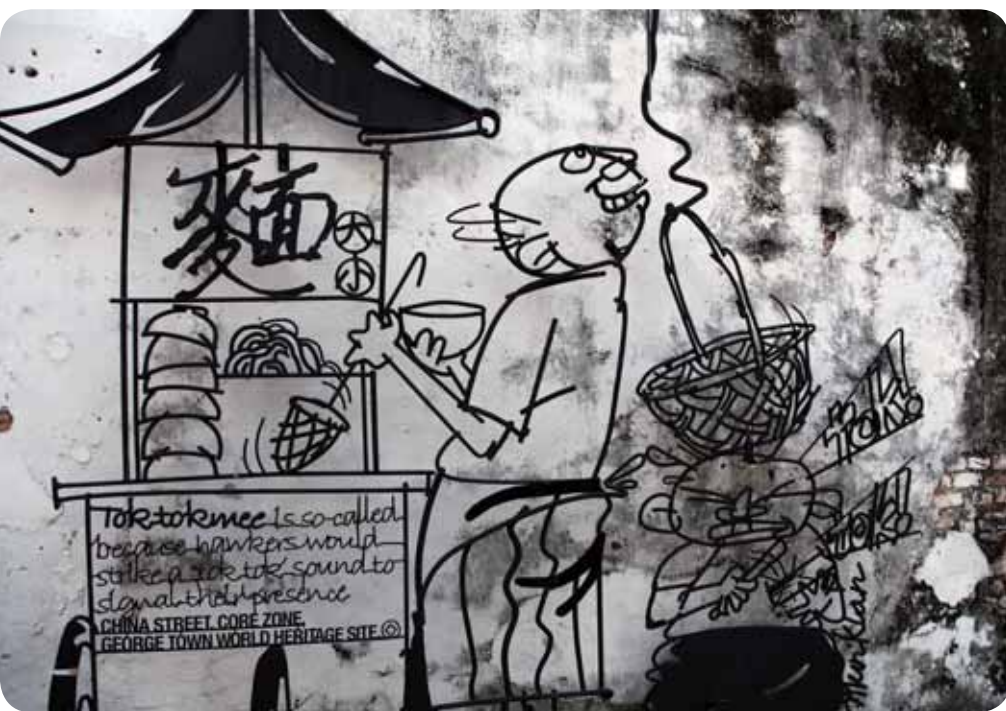 麵
大
小
Tok-tok mee is so-called
because hawkers would
strike a 'tok tok' sound to
signal their presence
CHINA STREET, CORE ZONE,
GEORGE TOWN WORLD HERITAGE SITE ©
TOK!
TOK!